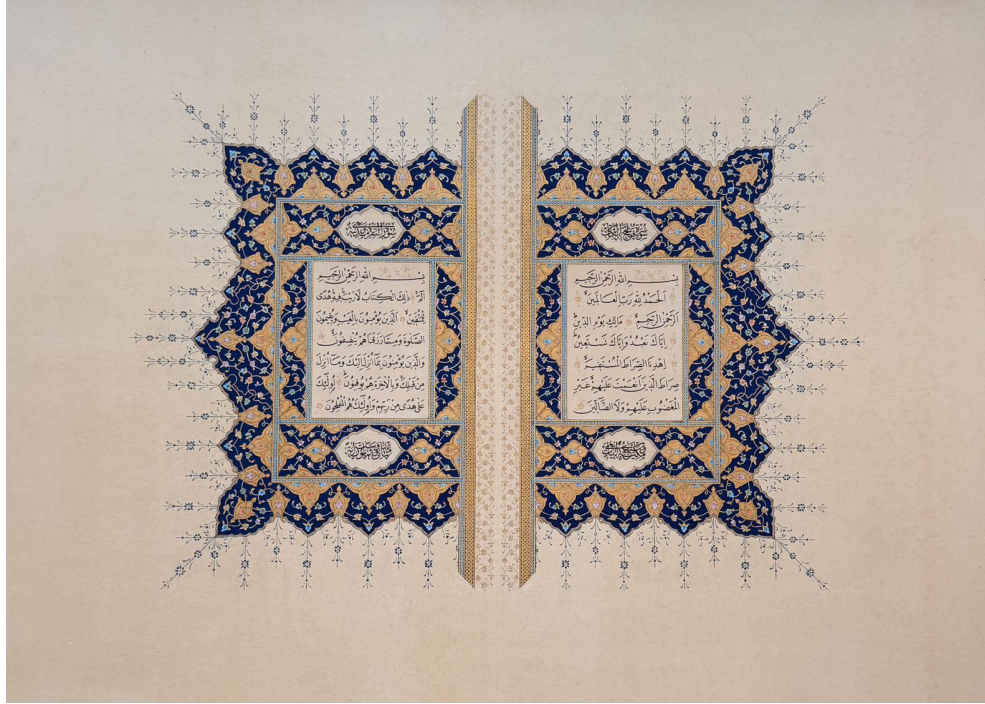 سورة فاتحة الكتاب
بسم الله الرحمن الرحيم
الحمد لله رب العالمين
الرحمن الرحيم مالك يوم الدين
إياك نعبد وإياك نستعين
اهدنا الصراط المستقيم
صراط الذين أنعمت عليهم غير
المغضوب عليهم ولا الضالين
سورة البقرة مدنية
بسم الله الرحمن الرحيم
الم ذلك الكتاب لا ريب فيه هدى
للمتقين الذين يؤمنون بالغيب ويقيمون
الصلوة ومما رزقناهم ينفقون
والذين يؤمنون بما أنزل إليك وما أنزل
من قبلك وبالآخرة هم يوقنون أولئك
على هدى من ربهم وأولئك هم المفلحون